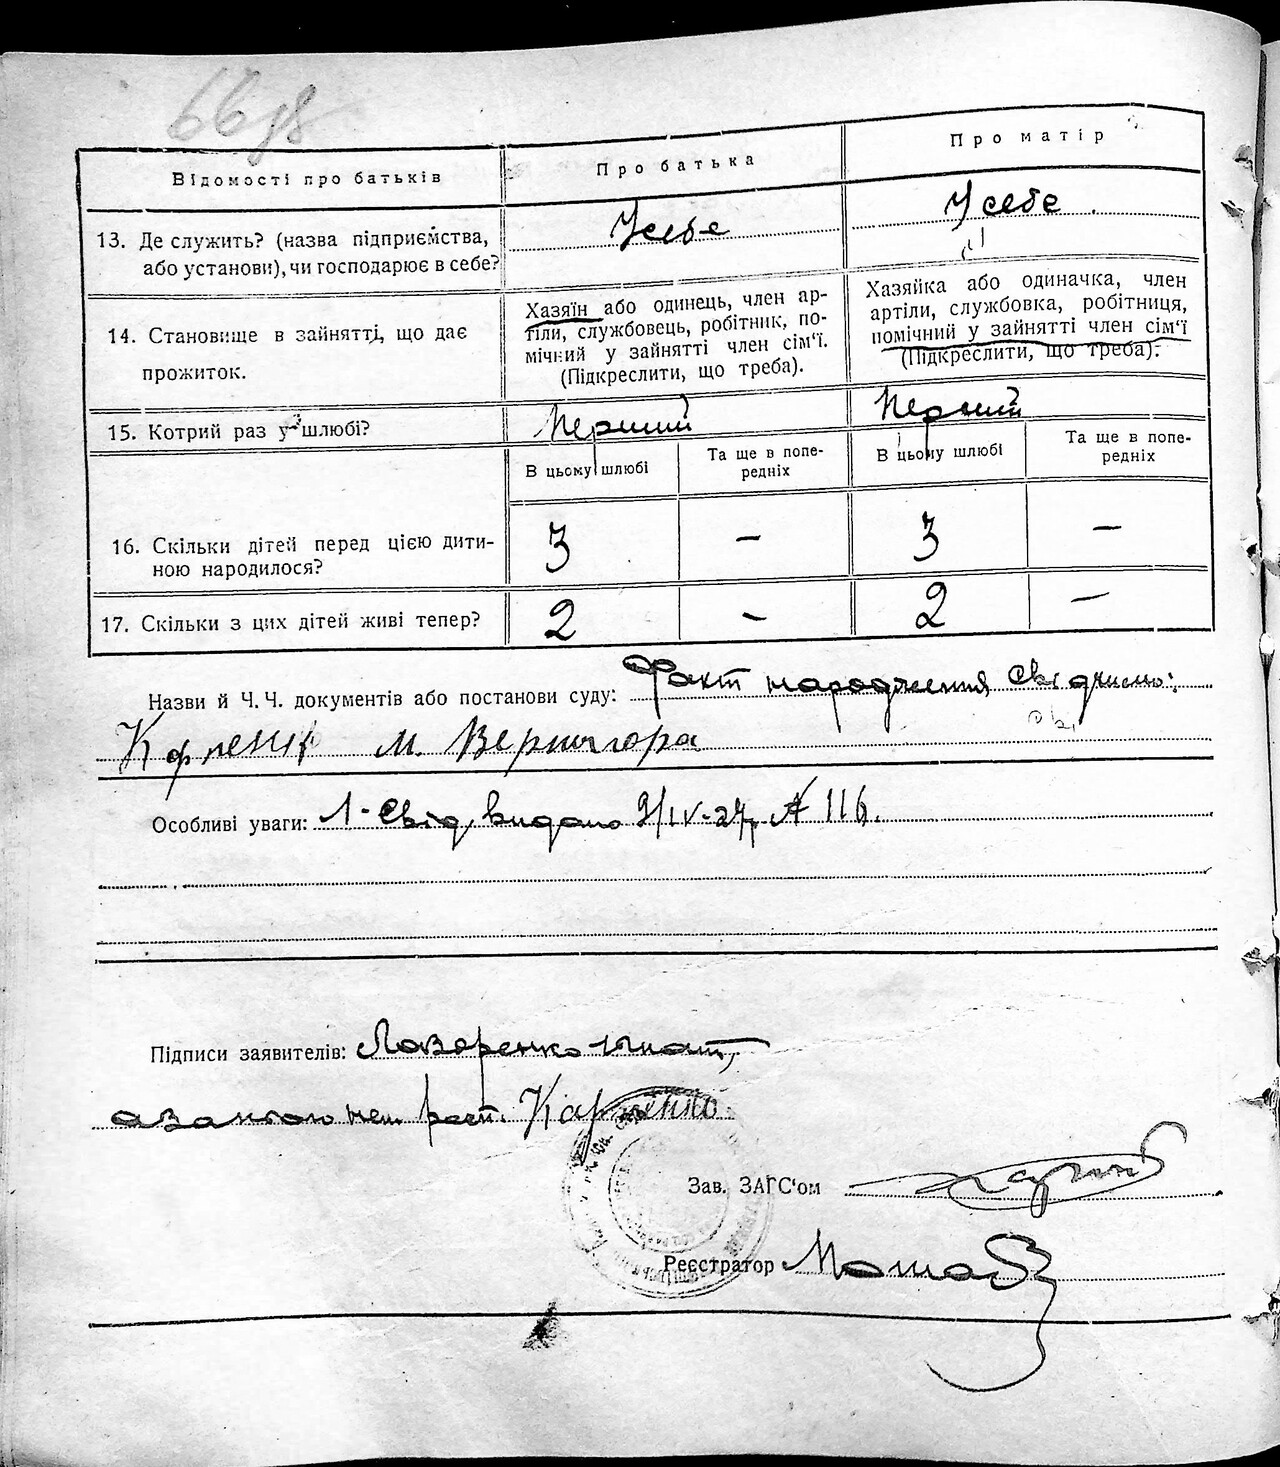 Відомості про батьків
Про батька
Про матір
13. Де служить? (назва підприємства,
або установи), чи господарює в себе?
У себе
У себе
14. Становище в зайнятті, що дає
прожиток.
Хазяїн або одинець, член ар-
тіли, службовець, робітник, по-
мічний у зайнятті член сім'ї.
(Підкреслити, що треба).
Хазяйка або одиначка, член
артіли, службовка, робітниця,
помічний у зайнятті член сім'ї
(Підкреслити, що треба).
15. Котрий раз у шлюбі?
Перший
Перший
В цьому шлюбі
Та ще в попе-
редніх
В цьому шлюбі
Та ще в попе-
редніх
16. Скільки дітей перед цією дити-
ною народилося?
3
—
3
—
17. Скільки з цих дітей живі тепер?
2
—
2
—
Назви й Ч. Ч. документів або постанови суду: Факт народження свідчимо:
М. Вернигора
Особливі уваги: 1. Свід. видано 9/IV-27р № 116.
Підписи заявителів: Лазоренко Гнат,
а за нього неп. росп. Карпенко
Зав. ЗАГС'ом
Реєстратор